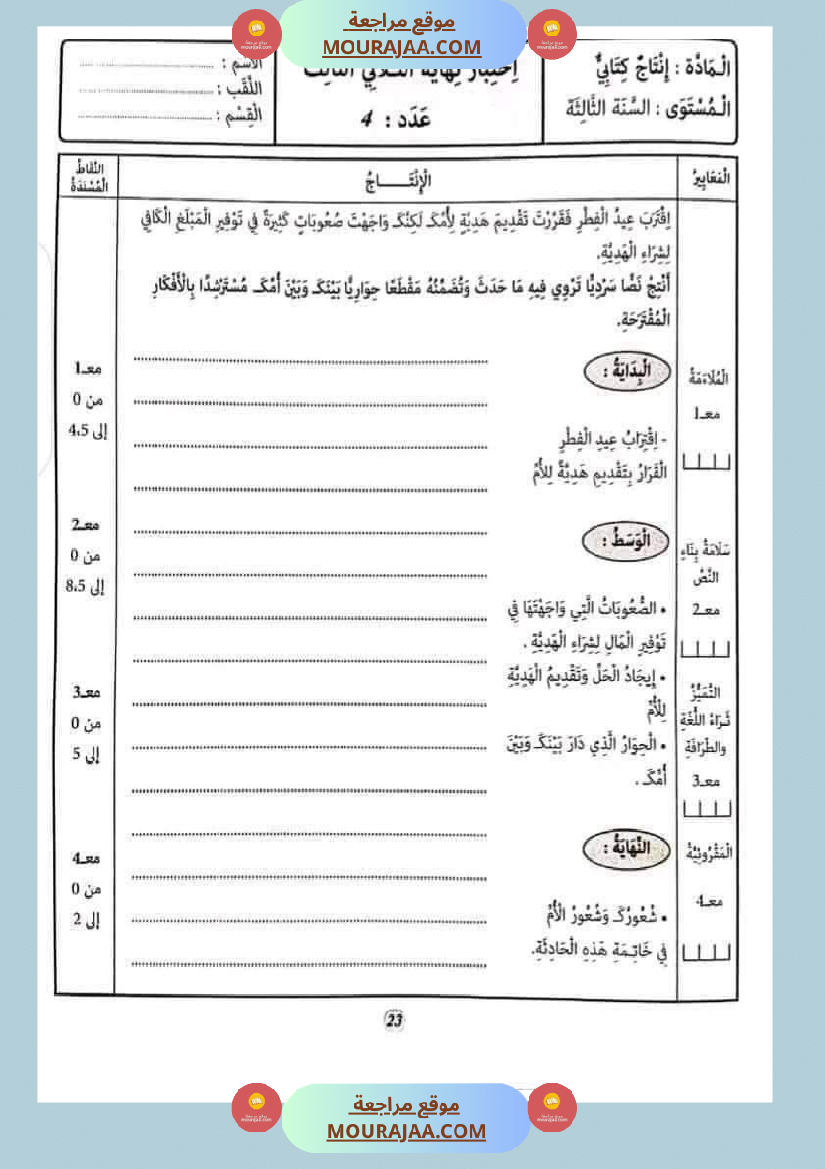 موقع مراجعة
MOURAJAA.COM
الْمَادَّة : إِنْتَاجٌ كِتَابِيٌّ
الْمُسْتَوَى : السَّنَة الثَّالِثَةَ
اِخْتِبَارُ نِهَايَةِ الثُّلَاثِي الثَّالِث
عَدَد : 4
الاسم :
اللَّقَب :
الْقِسْم :
الْمَعَايِيرُ
الْإِنْتَـــــاجُ
النِّقَاطُ
الْمُسْنَدَةُ
اِقْتَرَبَ عِيدُ الْفِطْرِ فَقَرَّرْتَ تَقْدِيمَ هَدِيَّةٍ لِأُمِّكَ لَكِنَّكَ وَاجَهْتَ صُعُوبَاتٍ كَثِيرَةً فِي تَوْفِيرِ الْمَبْلَغِ الْكَافِي
لِشِرَاءِ الْهَدِيَّةِ.
أَنْتِجْ نَصًّا سَرْدِيًّا تَرْوِي فِيهِ مَا حَدَثَ وَتُضَمِّنُهُ مَقْطَعًا حِوَارِيًّا بَيْنَكَ وَبَيْنَ أُمِّكَ مُسْتَرْشِدًا بِالْأَفْكَارِ
الْمُقْتَرَحَةِ.
الْمُلَاءَمَةُ
معـ1
الْبِدَايَةُ :
- اِقْتِرَابُ عِيدِ الْفِطْرِ
الْقَرَارُ بِتَقْدِيمِ هَدِيَّةً لِلأُمِّ
معـ1
من 0
إلى 4،5
سَلَامَةُ بِنَاءِ
النَّصِّ
معـ2
الْوَسَطُ :
• الصُّعُوبَاتُ الَّتِي وَاجَهْتَهَا فِي
تَوْفِيرِ الْمَالِ لِشِرَاءِ الْهَدِيَّةِ .
• إِيجَادُ الْحَلِّ وَتَقْدِيمُ الْهَدِيَّةِ
لِلْأُمِّ
• الْحِوَارُ الَّذِي دَارَ بَيْنَكَ وَبَيْنَ
أُمِّكَ .
معـ2
من 0
إلى 8،5
التَّمَيُّزُ
ثَرَاءُ اللُّغَةِ
والطَّرَافَةِ
معـ3
معـ3
من 0
إلى 5
الْمَقْرُوئِيَّةُ
معـ4
النِّهَايَةُ :
• شُعُورُكَ وَشُعُورُ الْأُمِّ
فِي خَاتِمَةِ هَذِهِ الْحَادِثَةِ.
معـ4
من 0
إلى 2
23
موقع مراجعة
MOURAJAA.COM